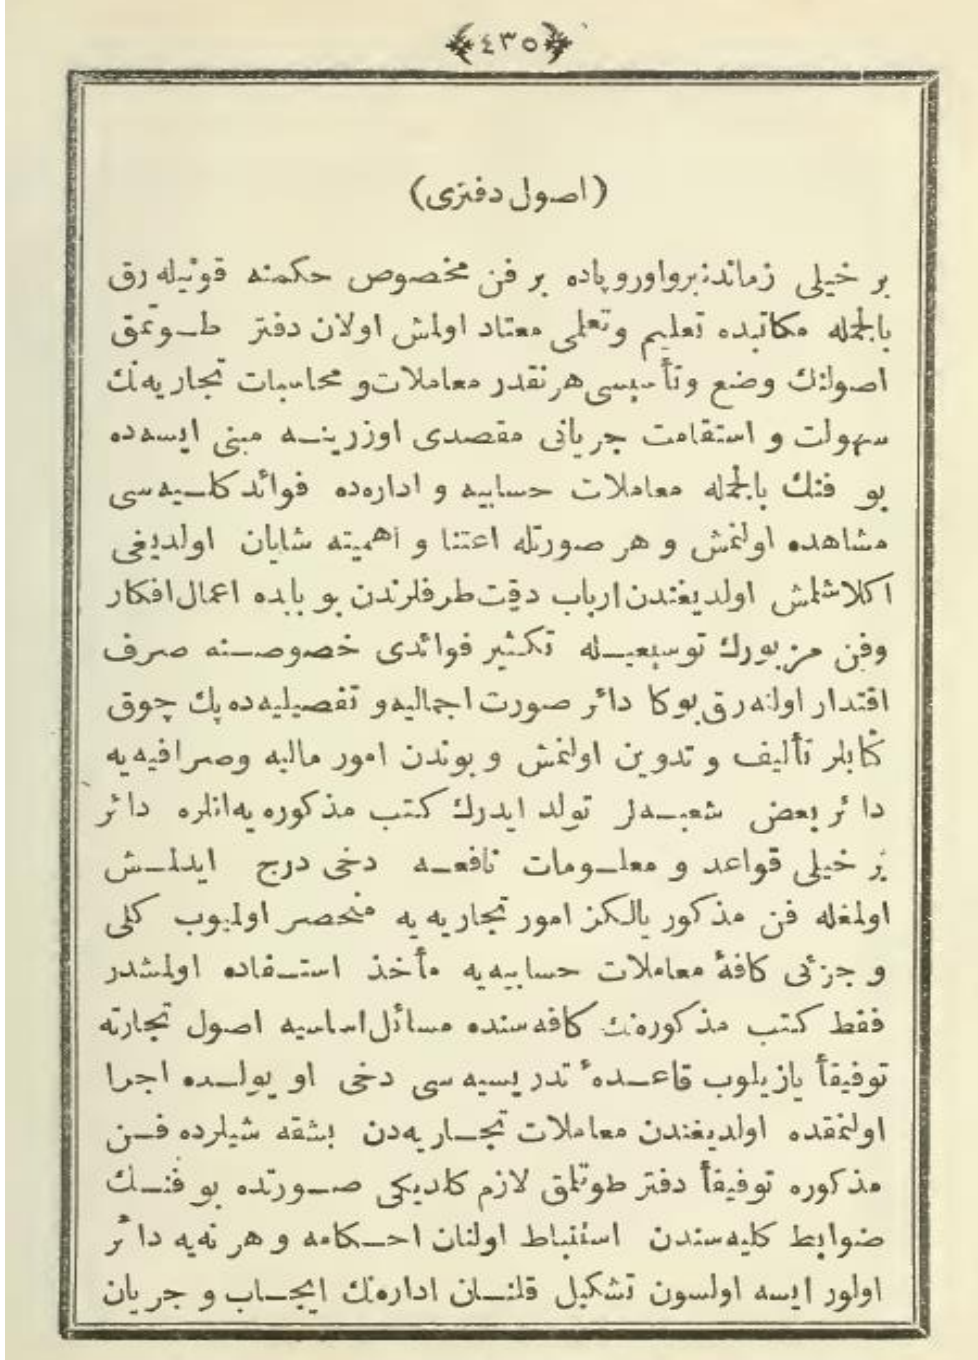 ﴿٤٣٥﴾
(اصول دفتری)
بر خیلی زماندنبرو اوروپاده بر فن مخصوص حکمنه قونیله رق
بالجمله مکاتبده تعلیم و تعلمی معتاد اولمش اولان دفتر طــوتمق
اصولنك وضع و تأسیسی هر نقدر معاملات و محاسبات تجاریه نك
سهولت و استقامت جریانی مقصدی اوزرینــه مبنی ایسه ده
بو فنك بالجمله معاملات حسابیه و اداره ده فوائد کلــیه سی
مشاهده اولنمش و هر صورتله اعتنا و اهمیته شایان اولدیغی
اکلاشلمش اولدیغندن ارباب دقت طرفلرندن بو بابده اعمال افکار
وفن مزبورك توسیعیــله تکثیر فوائدی خصوصــنه صرف
اقتدار اولنه رق بوکا دائر صورت اجمالیه و تفصیلیه ده پك چوق
کتابلر تألیف و تدوین اولنمش و بوندن امور مالیه وصرافیه یه
دائر بعض شعبــه لر تولد ایدرك کتب مذکوره یه انلره دائر
بر خیلی قواعد و معلــومات نافعــه دخی درج ایدلــش
اولمغله فن مذکور یالکز امور تجاریه یه منحصر اولمیوب کلی
و جزئی کافۀ معاملات حسابیه یه مأخذ استــفاده اولمشدر
فقط کتب مذکوره نك کافه سنده مسائل اساسیه اصول تجارته
توفیقاً یازیلوب قاعــدۀ تدریسیه سی دخی او یولــده اجرا
اولنمقده اولدیغندن معاملات تجــاریه دن بشقه شیلرده فــن
مذکوره توفیقاً دفتر طوتلمق لازم کلدیکی صــورتده بو فنــك
ضوابط کلیه سندن استنباط اولنان احــکامه و هر نه یه دائر
اولور ایسه اولسون تشکیل قلنــان اداره نك ایجــاب و جریان